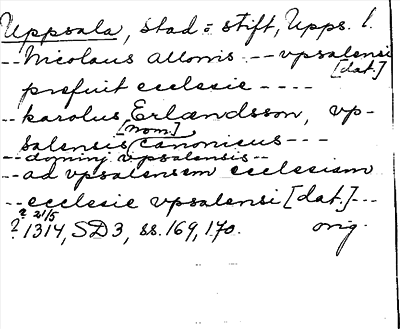 Uppsala, stad o stift, Upps. l.
-- Nicolaus allonis -- vpsalensi
[dat.]
prefuit ecclesie ----
-- karolus Erlændsson, vp-
[nom.]
salensis canonicus ---
-- dominj vpsalensis --
-- ad vpsalensem ecclesiam
-- ecclesie vpsalensi [dat.] ---
? 21/5
? 1314, SD 3, ss. 169, 170. orig.